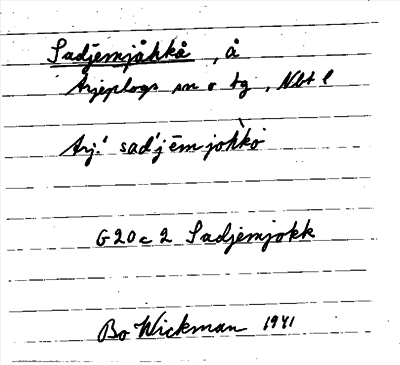 Sadjemjåhkå, å
Arjeplogs sn o tg, Nbt l
Arj.: sad'j ēm johkò
G20c2 Sadjemjokk
Bo Wickman 1941